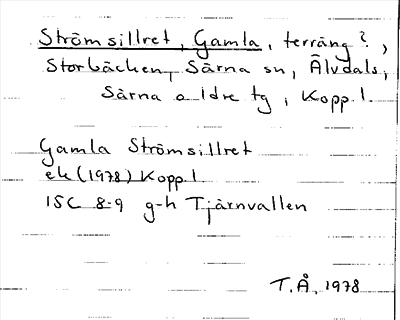 Strömsillret, Gamla, terräng?,
Storbäcken, Särna sn, Älvdals,
Särna o Idre tg, Kopp.l.
Gamla Strömsillret
ek (1978) Kopp.l
15C 8-9 g-h Tjärnvallen
T.Å, 1978